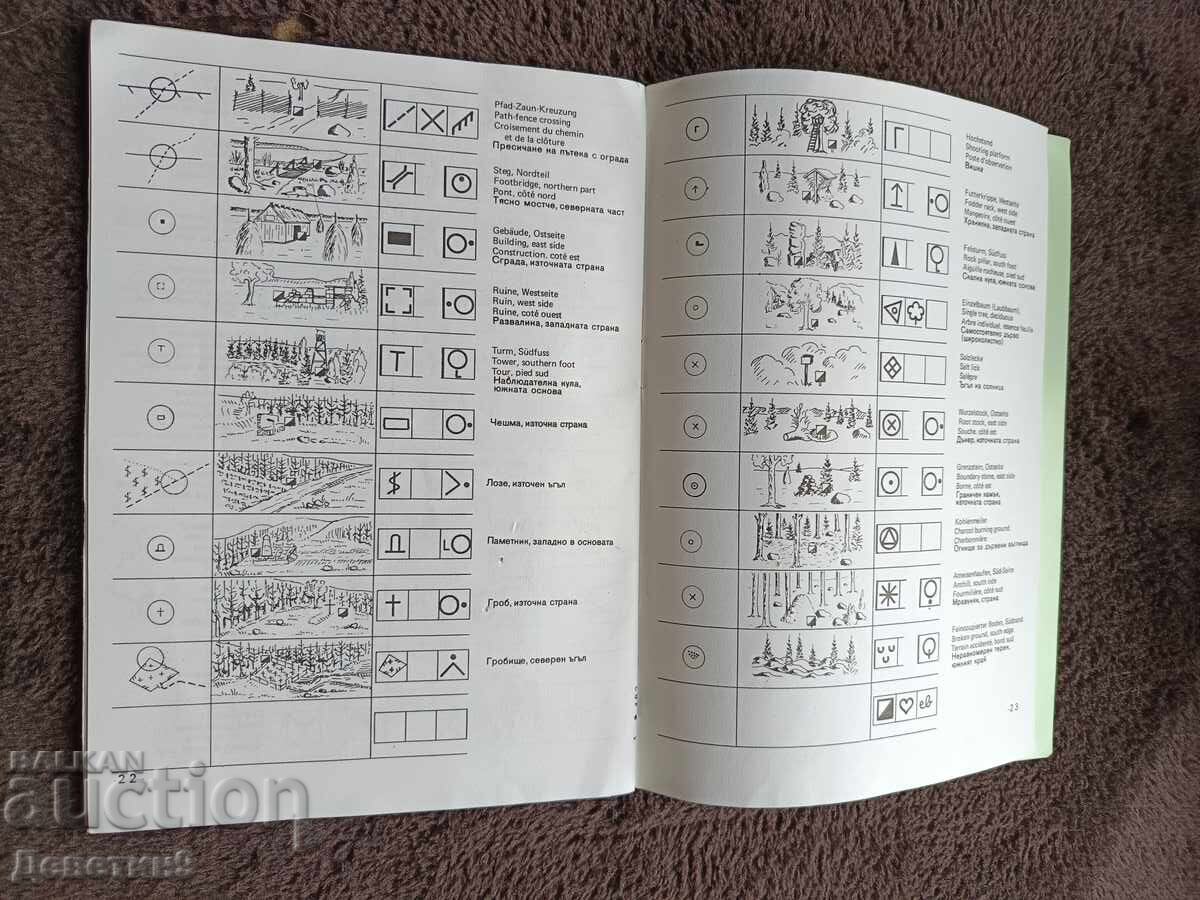 Pfad-Zaun-Kreuzung
Path-fence crossing
Croisement du chemin
et de la clôture
Пресичане на пътека с ограда
Steg, Nordteil
Footbridge, northern part
Pont, côté nord
Тясно мостче, северната част
Gebäude, Ostseite
Building, east side
Construction, coté est
Сграда, източната страна
Ruine, Westseite
Ruin, west side
Ruine, coté ouest
Развалина, западната страна
Turm, Südfuss
Tower, southern foot
Tour, pied sud
Наблюдателна кула,
южната основа
Чешма, източна страна
Лозе, източен ъгъл
Паметник, западно в основата
Гроб, източна страна
Гробище, северен ъгъл
22
Hochstand
Shooting platform
Poste d'observation
Вишка
Futterkrippe, Westseite
Fodder rack, west side
Mangeoire, côté ouest
Хранилка, западната страна
Felsturm, Südfuss
Rock pillar, south foot
Aiguille rocheuse, pied sud
Скална кула, южната основа
Einzelbaum (Laubbaum),
Single tree, deciduous
Arbre individuel, essence feuille
Самостоятелно дърво
(широколистно)
Salzlecke
Salt lick
Salèpre
Ъгъл на солница
Wurzelstock, Ostseite
Root stock, east side
Souche, côté est
Дънер, източната страна
Grenzstein, Ostseite
Boundary stone, east side
Borne, côté est
Граничен камък,
източната страна
Kohlenmeiler
Charcoal burning ground
Charbonnière
Огнище за дървени въглища
Ameisenhaufen, Süd-Seite
Anthill, south side
Fourmilière, côté sud
Мравуняк, страна
Feincoupierter Boden, Südrand
Broken ground, south edge
Terrain accidenté, bord sud
Неравномерен терен,
южният край
ев
23
BALKAN
auction
Деветин9